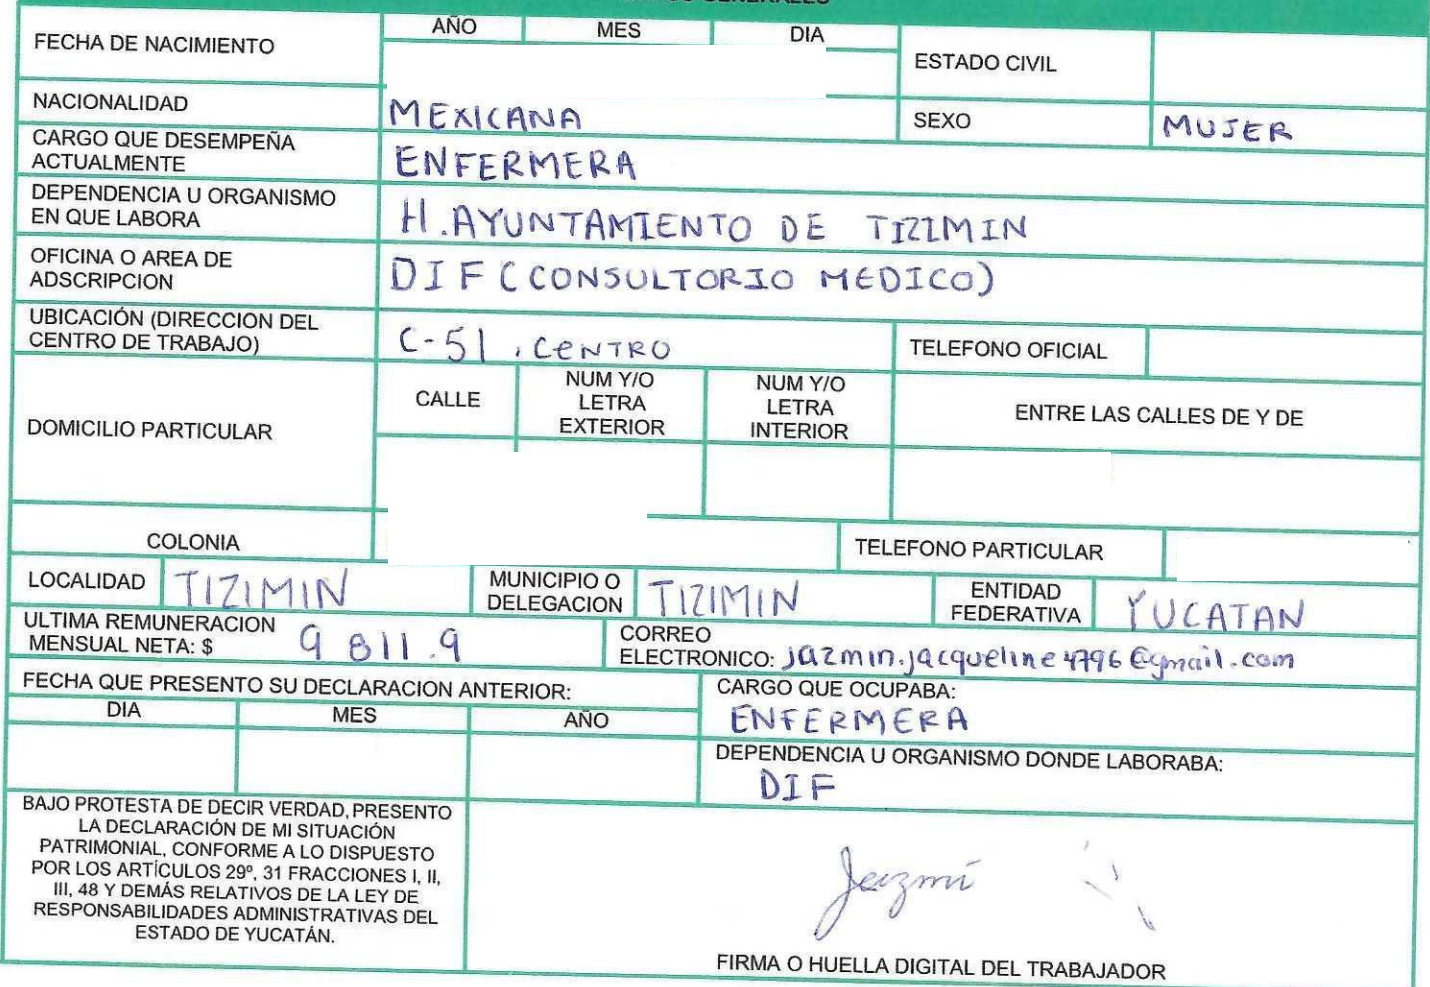 FECHA DE NACIMIENTO
AÑO MES DIA
ESTADO CIVIL
NACIONALIDAD
MEXICANA
SEXO
MUJER
CARGO QUE DESEMPEÑA
ACTUALMENTE
ENFERMERA
DEPENDENCIA U ORGANISMO
EN QUE LABORA
H. AYUNTAMIENTO DE TIZIMIN
OFICINA O AREA DE
ADSCRIPCION
DIF (CONSULTORIO MEDICO)
UBICACIÓN (DIRECCION DEL
CENTRO DE TRABAJO)
C-51, CENTRO
TELEFONO OFICIAL
DOMICILIO PARTICULAR
CALLE
NUM Y/O
LETRA
EXTERIOR
NUM Y/O
LETRA
INTERIOR
ENTRE LAS CALLES DE Y DE
COLONIA
TELEFONO PARTICULAR
LOCALIDAD
TIZIMIN
MUNICIPIO O
DELEGACION
TIZIMIN
ENTIDAD
FEDERATIVA
YUCATAN
ULTIMA REMUNERACION
MENSUAL NETA: $ 9 811.9
CORREO
ELECTRONICO: jazmin.jacqueline4796@gmail.com
FECHA QUE PRESENTO SU DECLARACION ANTERIOR:
DIA MES AÑO
CARGO QUE OCUPABA:
ENFERMERA
DEPENDENCIA U ORGANISMO DONDE LABORABA:
DIF
BAJO PROTESTA DE DECIR VERDAD, PRESENTO
LA DECLARACIÓN DE MI SITUACIÓN
PATRIMONIAL, CONFORME A LO DISPUESTO
POR LOS ARTÍCULOS 29º, 31 FRACCIONES I, II,
III, 48 Y DEMÁS RELATIVOS DE LA LEY DE
RESPONSABILIDADES ADMINISTRATIVAS DEL
ESTADO DE YUCATÁN.
FIRMA O HUELLA DIGITAL DEL TRABAJADOR